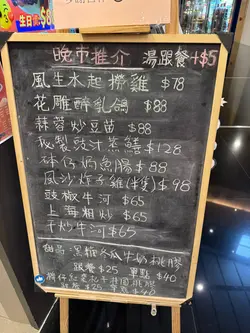 生日
晚市推介 湯跟餐+$5
風生水起撈雞 $78
花雕醉乳鴿 $88
蒜蓉炒豆苗 $88
秘製豉汁蒸鱔 $128
砵仔焗魚腸 $88
風沙炸子雞(隻) $98
豉椒牛河 $65
上海粗炒 $65
干炒牛河 $65
甜品:黑糖冬瓜牛奶桃膠
跟餐$25 單點 $40